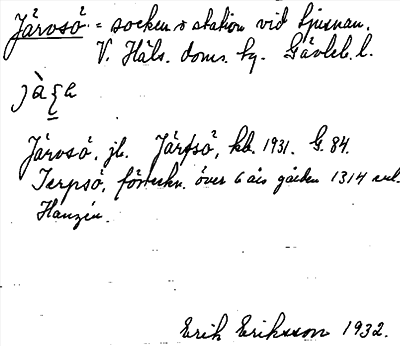 Järvsö = socken o station vid Ljusnan.
V. Häls. doms. hg. Gävleb. l.
Järvsö, jb. Järfsö, kb. 1931. G. 84.
Jerpsö, förtekn. över 6 års gärden 1314 enl.
Hanzén.
Erik Eriksson 1932.